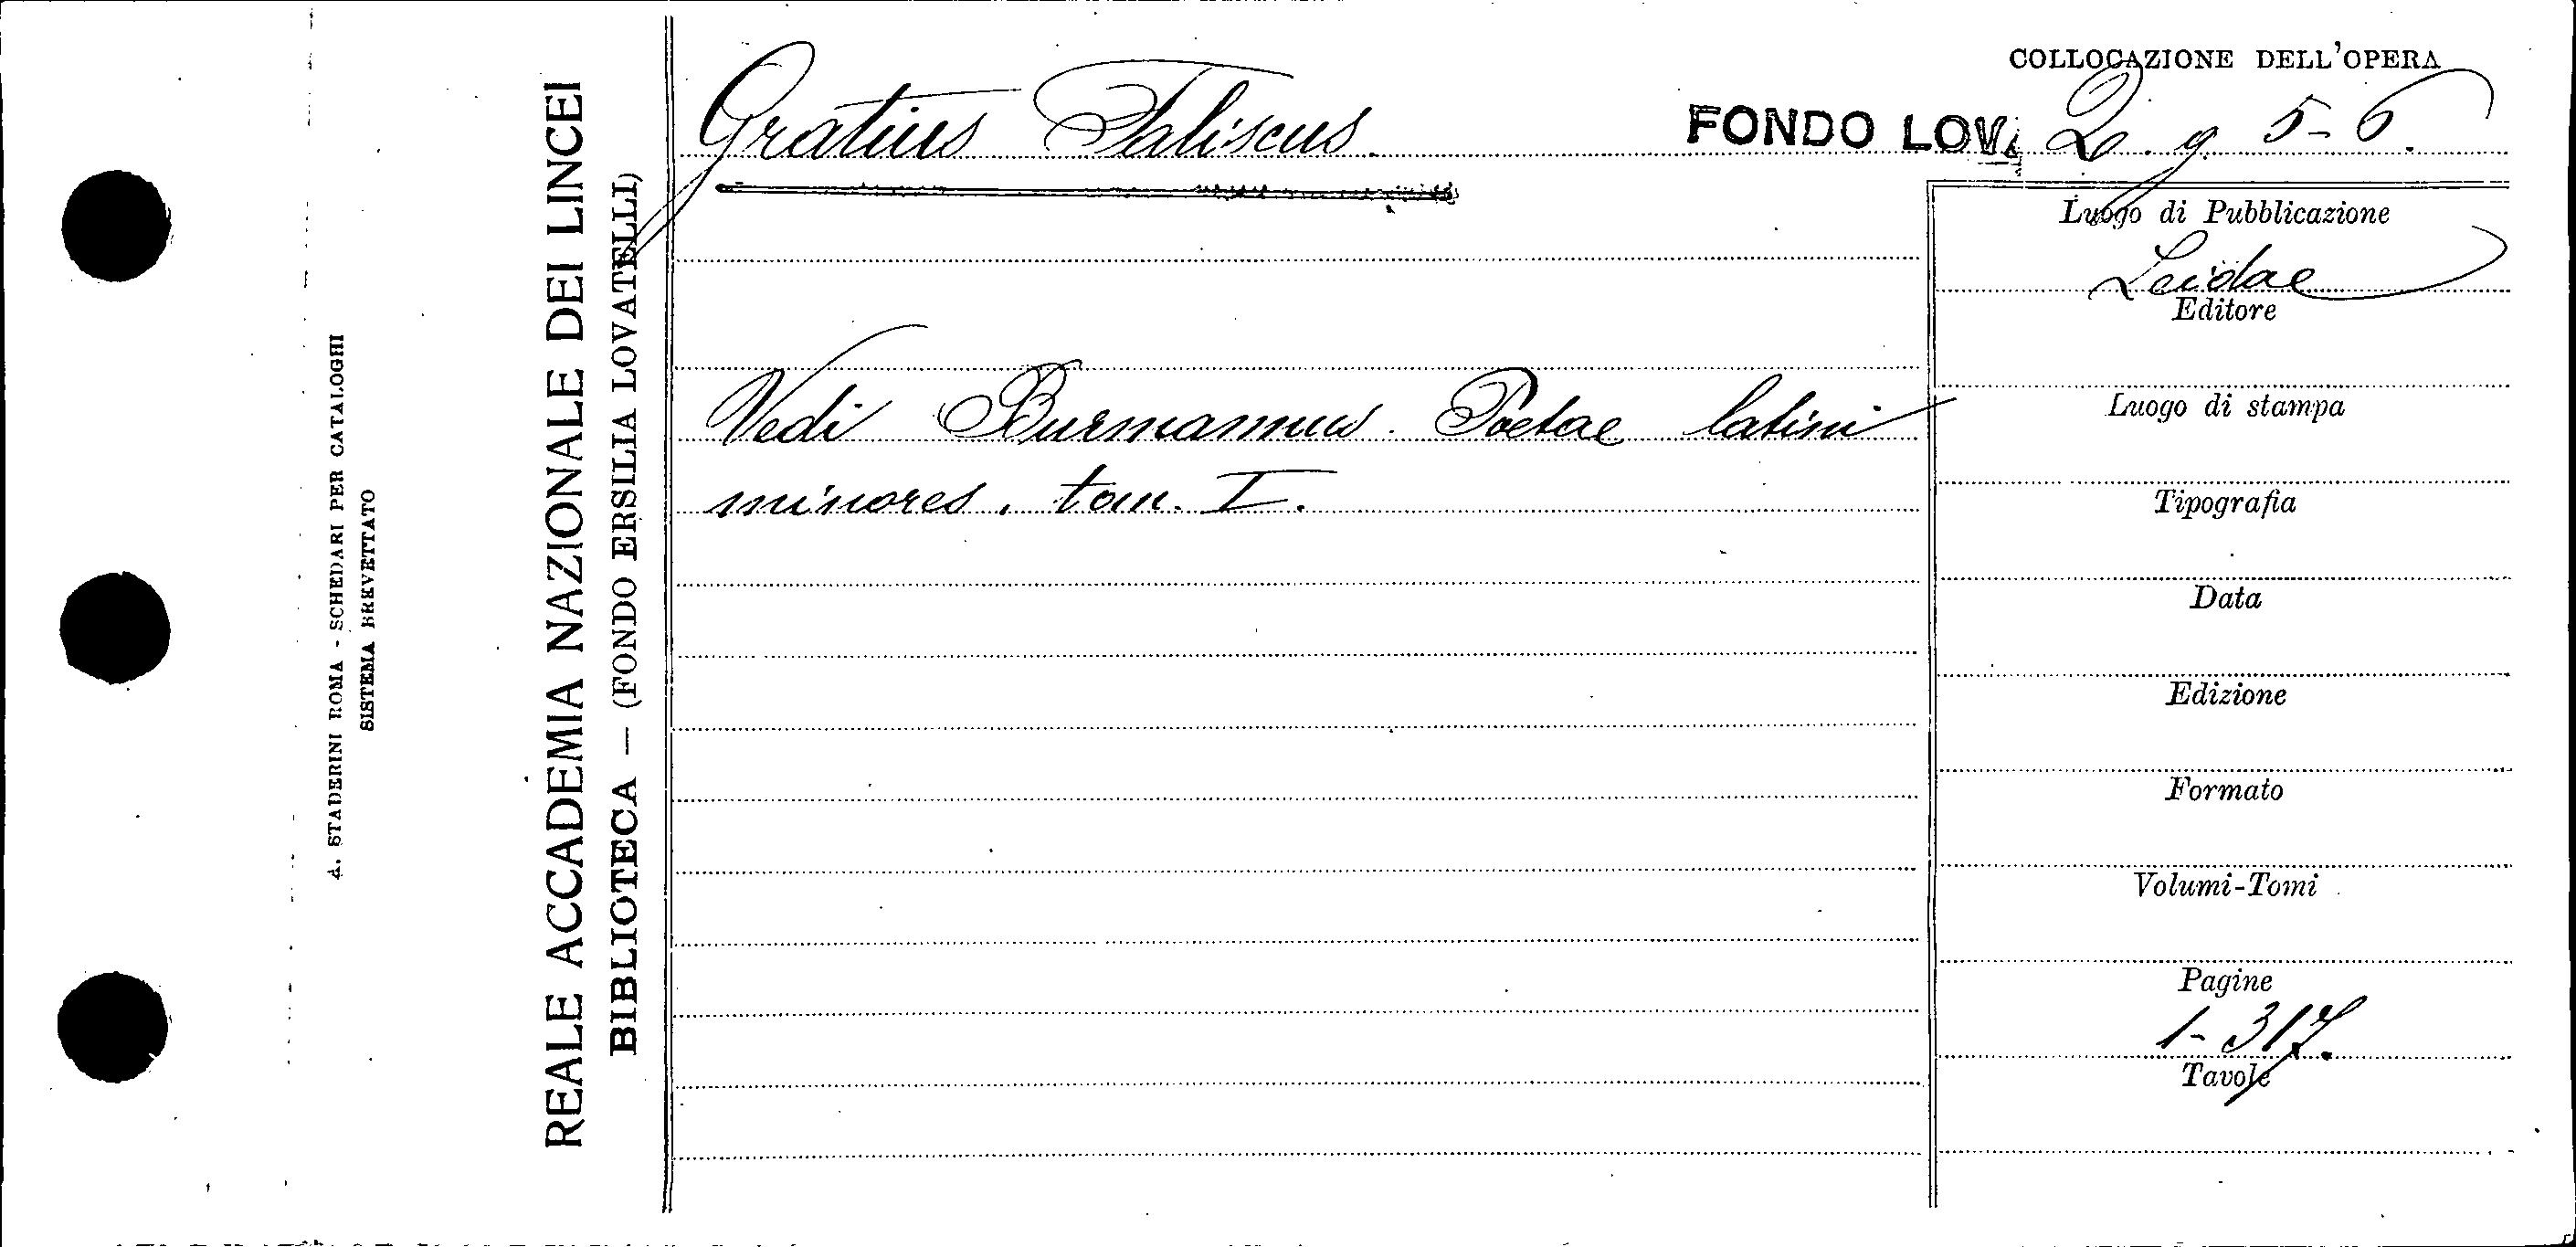 A. STADERINI ROMA - SCHEDARI PER CATALOGHI
SISTEMA BREVETTATO
REALE ACCADEMIA NAZIONALE DEI LINCEI
BIBLIOTECA — (FONDO ERSILIA LOVATELLI)
COLLOCAZIONE DELL'OPERA
Gratius Faliscus.
FONDO LOV. 2. g. 5-6.
Vedi Burmannus. Poetae latini
minores, tom. I.
Luogo di Pubblicazione
Leidae
Editore
Luogo di stampa
Tipografia
Data
Edizione
Formato
Volumi-Tomi
Pagine
1-317.
Tavole